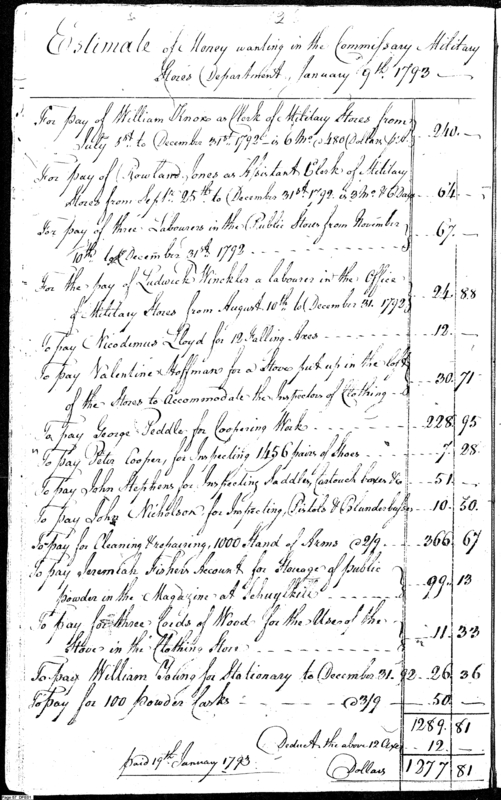 2
Estimate of Money wanting in the Commissary Military
Stores Department, January 9th. 1793
For pay of William Knox as Clerk of Military Stores from
July 1st to December 31st 1792 is 6 Mo. @ 480 Dollars 240.
For pay of Rowland Jones as Assistant Clerk of Military
Stores from Septr. 25th to December 31st 1792 is 3 Mo. & 6 Days 64.
For pay of three Labourers in the Public Stores from November
10th to December 31st 1792 67.
For the pay of Ludwick Winckler a labourer in the Office
of Military Stores from August 10th to December 31. 1792 24.88
To pay Nicodemus Lloyd for 12 Falling Axes 12.
To pay Valentine Hoffman for a Stove put up in the Loft
of the Stores to Accommodate the Inspectors of Clothing 30.71
To pay George Peddle for Coopering Work 228.95
To pay Peter Cooper, for Inspecting 1456 pairs of Shoes 7.28
To pay John Stephens for Inspecting Saddles, Cartouch boxes &c 51.
To pay John Nicholson for Inspecting Pistols & Blunderbusses 10.50.
To pay for Cleaning & repairing 1000 Stand of Arms @ 2/9 366.67
To pay Jeremiah Fishers Account for Storeage of public
powder in the Magazine at Schuylkill 99.13
To pay for three Cords of Wood for the Use of the
Stove in the Clothing Store 11.33
To pay William Young for Stationary to December 31. 92 26.36
To pay for 100 powder Casks @ 3/9 50.
1289.81
Deduct the above 12 Axes 12.
paid 19th January 1793 Dollars 1277.81